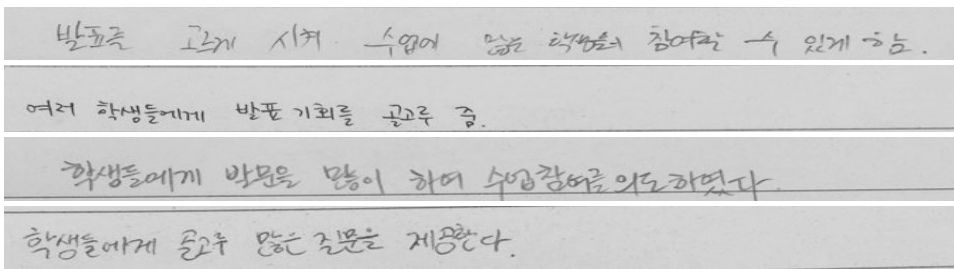 발표를 고르게 시켜 수업에 많은 학생들이 참여할 수 있게 하는.
여러 학생들에게 발표 기회를 골고루 줌.
학생들에게 발문을 많이 하여 수업참여를 의도하였다.
학생들에게 골고루 많은 질문을 제공한다.